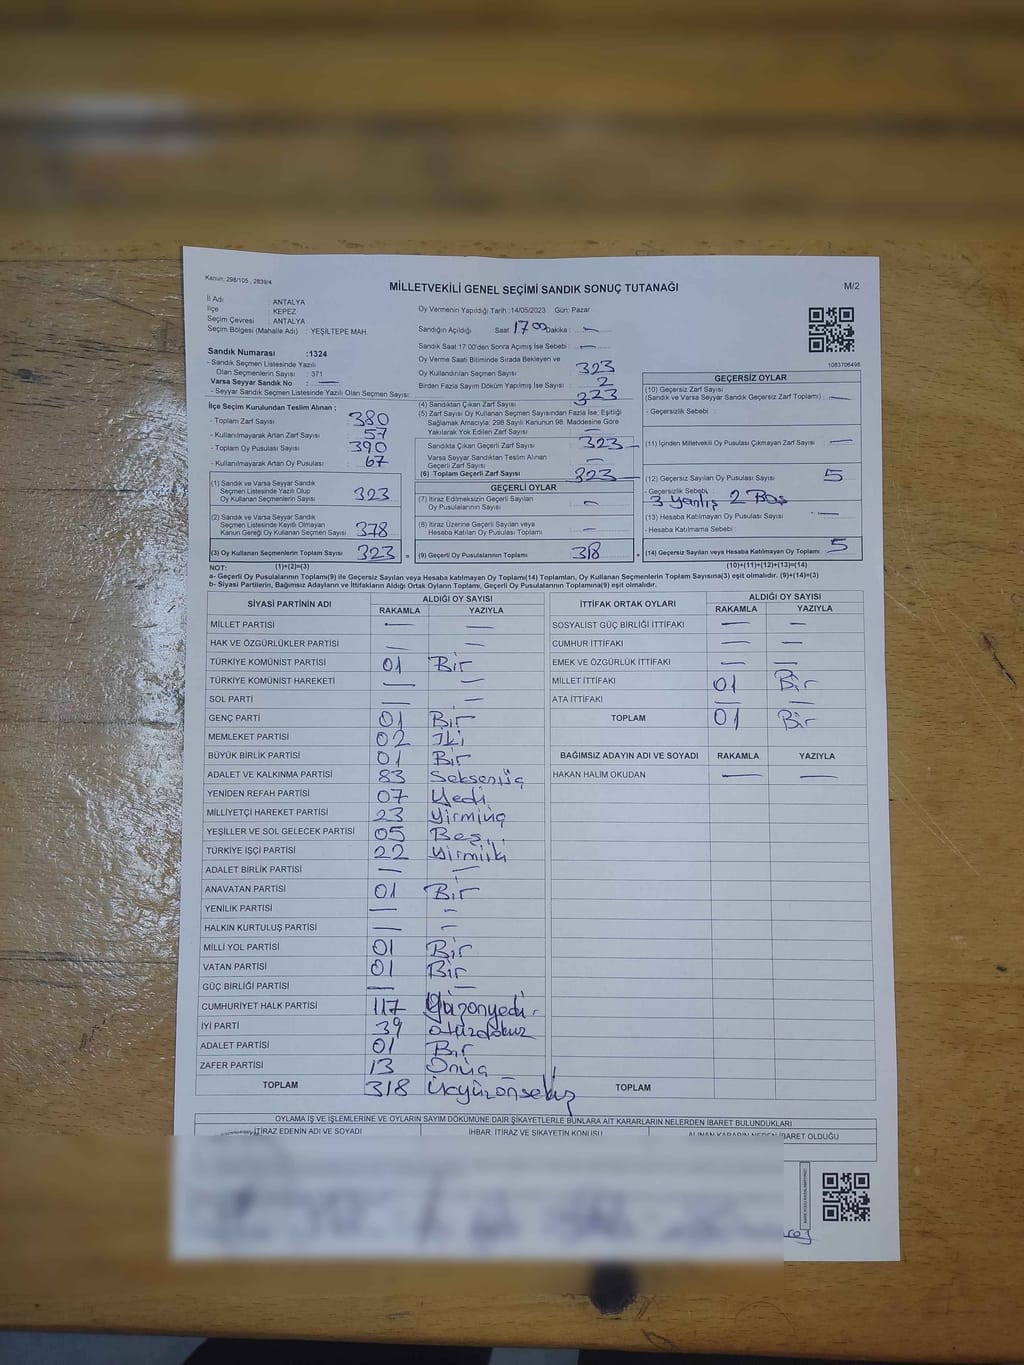 Kanun: 298/105 , 2839/4
MİLLETVEKİLİ GENEL SEÇİMİ SANDIK SONUÇ TUTANAĞI
M/2
İl Adı : ANTALYA
İlçe : KEPEZ
Seçim Çevresi : ANTALYA
Seçim Bölgesi (Mahalle Adı) : YEŞİLTEPE MAH.
Oy Vermenin Yapıldığı Tarih :14/05/2023 Gün: Pazar
Sandığın Açıldığı Saat 17 00 Dakika : —
Sandık Saat 17:00'den Sonra Açımış İse Sebebi : —
1083706498
Sandık Numarası :1324
- Sandık Seçmen Listesinde Yazılı
Olan Seçmenlerin Sayısı : 371
Varsa Seyyar Sandık No : —
- Seyyar Sandık Seçmen Listesinde Yazılı Olan Seçmen Sayısı:
Oy Verme Saati Bitiminde Sırada Bekleyen ve
Oy Kullandırılan Seçmen Sayısı : 323
Birden Fazla Sayım Döküm Yapılmış İse Sayısı : 2
İlçe Seçim Kurulundan Teslim Alınan ;
- Toplam Zarf Sayısı : 380
- Kullanılmayarak Artan Zarf Sayısı : 57
- Toplam Oy Pusulası Sayısı : 390
- Kullanılmayarak Artan Oy Pusulası : 67
(1) Sandık ve Varsa Seyyar Sandık
Seçmen Listesinde Yazılı Olup
Oy Kullanan Seçmenlerin Sayısı : 323
(2) Sandık ve Varsa Seyyar Sandık
Seçmen Listesinde Kayıtlı Olmayan
Kanun Gereği Oy Kullanan Seçmen Sayısı : 378
(3) Oy Kullanan Seçmenlerin Toplam Sayısı 323 =
(4) Sandıktan Çıkan Zarf Sayısı : 323
(5) Zarf Sayısı Oy Kullanan Seçmen Sayısından Fazla İse, Eşitliği
Sağlamak Amacıyla; 298 Sayılı Kanunun 98. Maddesine Göre
Yakılarak Yok Edilen Zarf Sayısı : —
Sandıkta Çıkan Geçerli Zarf Sayısı : 323
Varsa Seyyar Sandıktan Teslim Alınan
Geçerli Zarf Sayısı : —
(6) Toplam Geçerli Zarf Sayısı : 323
GEÇERLİ OYLAR
(7) İtiraz Edilmeksizin Geçerli Sayılan
Oy Pusulalarının Sayısı : —
(8) İtiraz Üzerine Geçerli Sayılan veya
Hesaba Katılan Oy Pusulası Toplamı : —
(9) Geçerli Oy Pusulalarının Toplamı : 318 +
GEÇERSİZ OYLAR
(10) Geçersiz Zarf Sayısı
(Sandık ve Varsa Seyyar Sandık Geçersiz Zarf Toplamı) : —
- Geçersizlik Sebebi :
(11) İçinden Milletvekili Oy Pusulası Çıkmayan Zarf Sayısı : —
(12) Geçersiz Sayılan Oy Pusulası Sayısı : 5
- Geçersizlik Sebebi
3 yanlış 2 Boş
(13) Hesaba Katılmayan Oy Pusulası Sayısı : —
- Hesaba Katılmama Sebebi :
(14) Geçersiz Sayılan veya Hesaba Katılmayan Oy Toplamı : 5
NOT: (1)+(2)=(3)
(10)+(11)+(12)+(13)=(14)
a- Geçerli Oy Pusulalarının Toplamı(9) ile Geçersiz Sayılan veya Hesaba katılmayan Oy Toplam(14) Toplamları, Oy Kullanan Seçmenlerin Toplam Sayısına(3) eşit olmalıdır. (9)+(14)=(3)
b- Siyasi Partilerin, Bağımsız Adayların ve İttifakların Aldığı Ortak Oyların Toplamı, Geçerli Oy Pusulalarının Toplamına(9) eşit olmalıdır.
SİYASİ PARTİNİN ADI ALDIĞI OY SAYISI
RAKAMLA YAZIYLA
MİLLET PARTİSİ — —
HAK VE ÖZGÜRLÜKLER PARTİSİ — —
TÜRKİYE KOMÜNİST PARTİSİ 01 Bir
TÜRKİYE KOMÜNİST HAREKETİ — —
SOL PARTİ —
GENÇ PARTİ 01 Bir
MEMLEKET PARTİSİ 02 İki
BÜYÜK BİRLİK PARTİSİ 01 Bir
ADALET VE KALKINMA PARTİSİ 83 Seksenüç
YENİDEN REFAH PARTİSİ 07 Yedi
MİLLİYETÇİ HAREKET PARTİSİ 23 Yirmiüç
YEŞİLLER VE SOL GELECEK PARTİSİ 05 Beş
TÜRKİYE İŞÇİ PARTİSİ 22 Yirmiiki
ADALET BİRLİK PARTİSİ — —
ANAVATAN PARTİSİ 01 Bir
YENİLİK PARTİSİ — —
HALKIN KURTULUŞ PARTİSİ — —
MİLLİ YOL PARTİSİ 01 Bir
VATAN PARTİSİ 01 Bir
GÜÇ BİRLİĞİ PARTİSİ — —
CUMHURİYET HALK PARTİSİ 117 Yüzonyedi
İYİ PARTİ 39 Otuzdokuz
ADALET PARTİSİ 01 Bir
ZAFER PARTİSİ 13 Onüç
TOPLAM 318 Üçyüzonsekiz
İTTİFAK ORTAK OYLARI ALDIĞI OY SAYISI
RAKAMLA YAZIYLA
SOSYALİST GÜÇ BİRLİĞİ İTTİFAKI — —
CUMHUR İTTİFAKI — —
EMEK VE ÖZGÜRLÜK İTTİFAKI — —
MİLLET İTTİFAKI 01 Bir
ATA İTTİFAKI — —
TOPLAM 01 Bir
BAĞIMSIZ ADAYIN ADI VE SOYADI RAKAMLA YAZIYLA
HAKAN HALİM OKUDAN — —
TOPLAM
OYLAMA İŞ VE İŞLEMLERİNE VE OYLARIN SAYIM DÖKÜMÜNE DAİR ŞİKAYETLERLE BUNLARA AİT KARARLARIN NELERDEN İBARET BULUNDUKLARI
İTİRAZ EDENİN ADI VE SOYADI İHBAR, İTİRAZ VE ŞİKAYETİN KONUSU ALINAN KARARIN NEDEN İBARET OLDUĞU